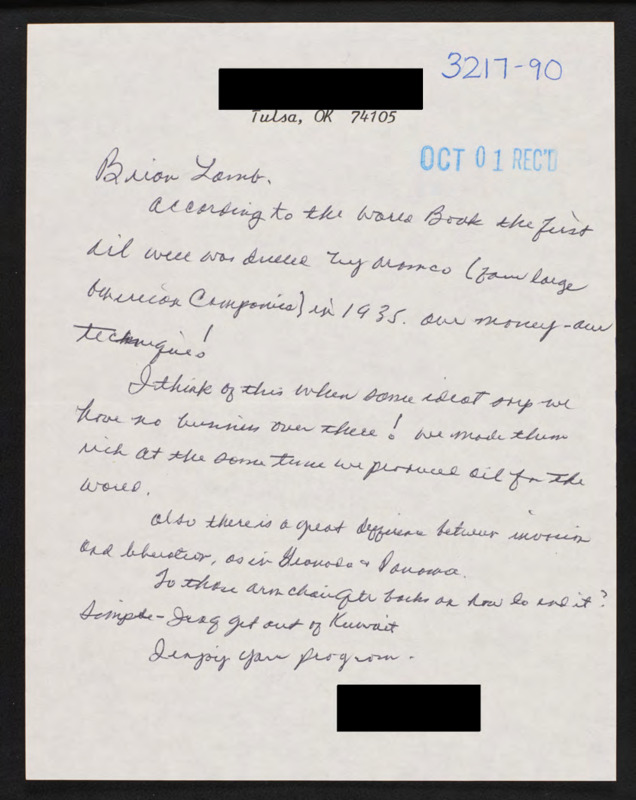 3217-90
Tulsa, OK 74105
OCT 01 REC'D
Brian Lamb.
According to the World Book the first
oil well was drilled by Aramco (four large
American Companies) in 1935. Our money - our
techniques!
I think of this when some idiot says we
have no business over there! We made them
rich at the same time we produced oil for the
world.
Also there is a great difference between invasion
and liberation, as in Grenada & Panama.
To those arm chair Qtr backs on how to end it?
Simple - Iraq get out of Kuwait
I enjoy your program.